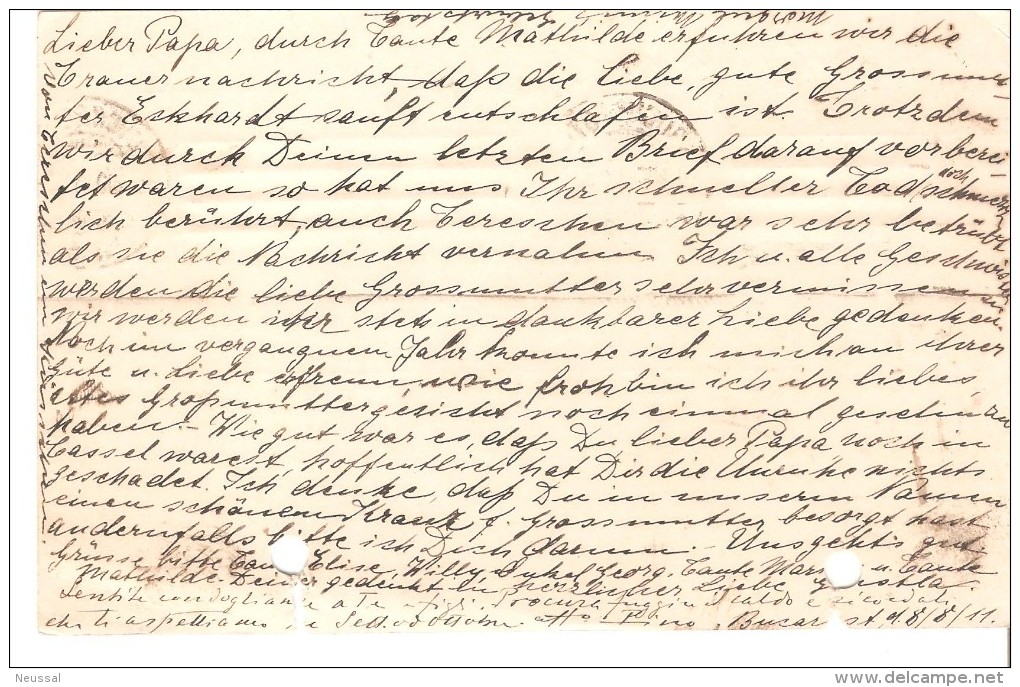 Lieber Papa, durch Tante Mathilde erfuhren wir die
Trauernachricht, daß die liebe, gute Grossmut-
ter Eckhardt sanft entschlafen ist. Trotzdem
wir durch Deinen letzten Brief darauf vorberei-
tet waren so hat uns Ihr schneller Tod noch schmerz-
lich berührt, auch Tereschen war sehr betrübt
als sie die Nachricht vernahm. Ich u. alle Geschwister
werden die liebe Grossmutter sehr vermissen u.
wir werden ihrer stets in dankbarer Liebe gedenken.
Noch im vergangnen Jahr konnte ich mich an ihrer
Güte u. Liebe erfreun, wie froh bin ich ihr liebes
altes Großmuttergesicht noch einmal gesehn zu
haben. - Wie gut war es, daß Du lieber Papa noch in
Cassel warest, hoffentlich hat Dir die Unruhe nichts
geschadet. Ich denke, daß Du in unserm Namen
einen schönen Kranz f. Grossmutter besorgt hast
andernfalls bitte ich Dich darum. - Uns gehts gut
Grüsse bitte Tante Elise, Willy, Onkel Georg, Tante Marie u. Tante
Mathilde. Deiner gedenkt in herzlicher Liebe
Sentite condoglianze a Te e figli.
che ti aspettiamo in Sett. od Ottobre aff.mo Pino Bucarest, d. 8/8/11.
Neussal
delcampe.net